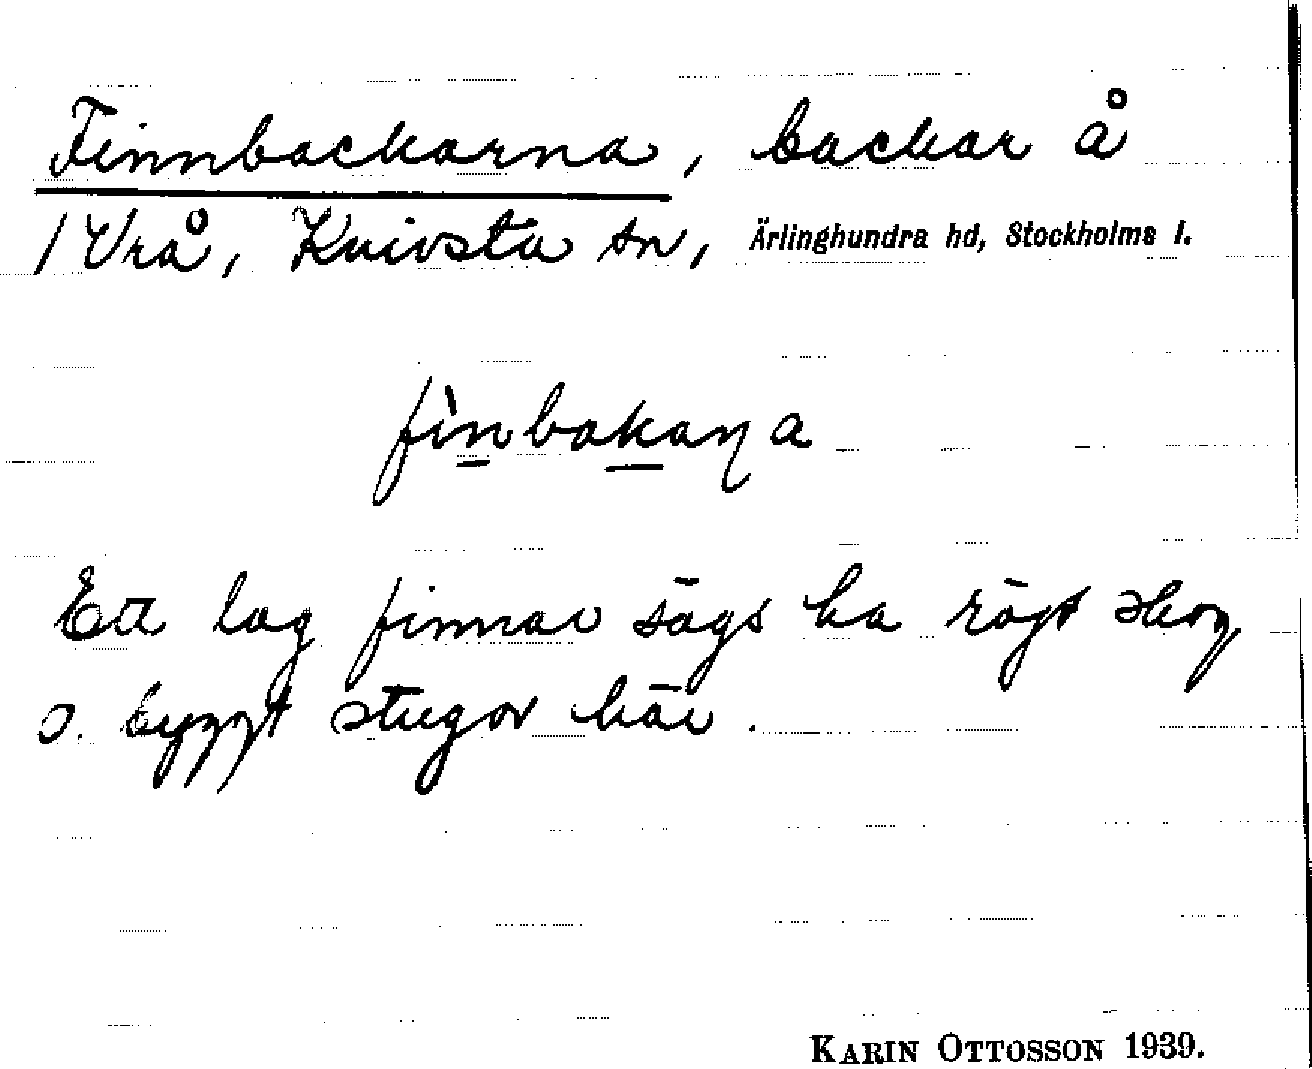 Finnbackarna, backar å
/ Vrå, Knivsta sn, Ärlinghundra hd, Stockholms l.
fìnbakaɳa
Ett lag finnar sägs ha röjt skog
o. byggt stugor här.
KARIN OTTOSSON 1939.